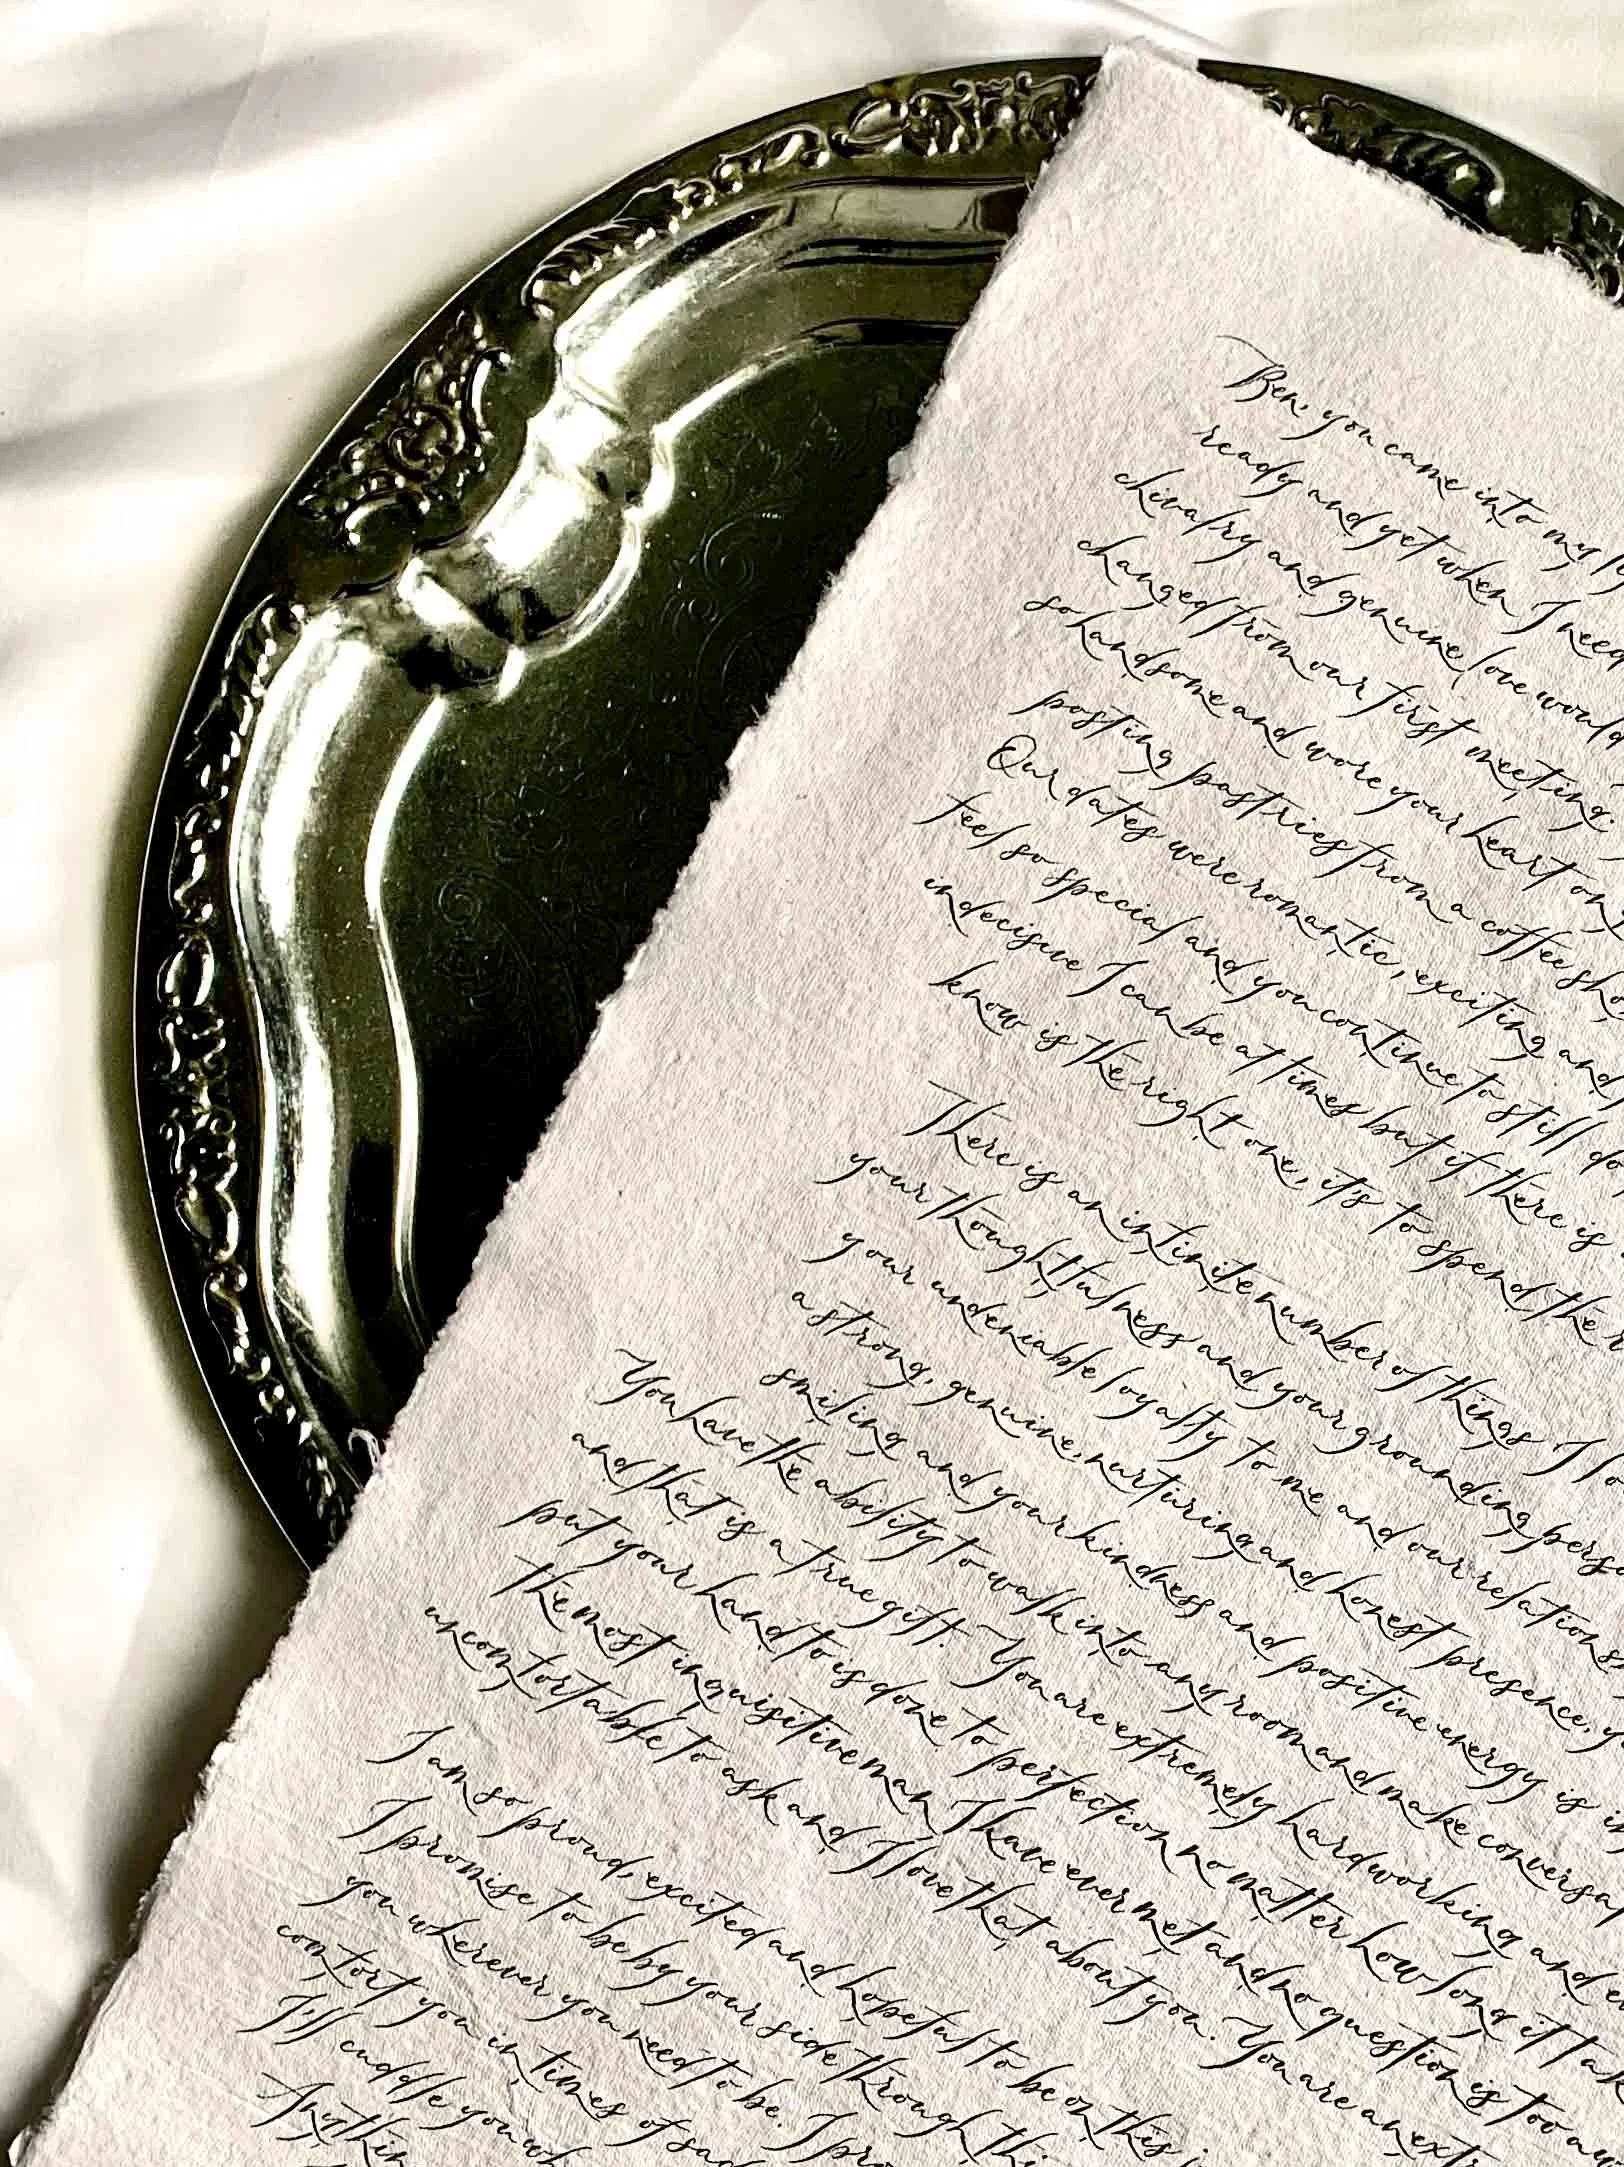 Ben, you came into my
ready and yet when I need
chivalry and genuine love would
changed from our first meeting.
so handsome and wore your heart on
posting pastries from a coffee
Our dates were romantic, exciting and
feel so special and you continue to still do
indecisive I can be at times but if there is
know is the right one, it's to spend the
There is an infinite number of things I
your thoughtfulness and your grounding
your undeniable loyalty to me and our
a strong, genuine, nurturing and honest presence,
smiling and your kindness and positive energy is
You have the ability to walk into any room and make
and that is a true gift. You are extremely hardworking and
put your hand to is done to perfection no matter how long it
the most inquisitive man I have ever met and no question is too
uncomfortable to ask and I love that about you. You are an
I am so proud, excited and hopeful to be on this
I promise to be by your side through
you wherever you need to be. I
comfort you in times of
I'll cuddle you